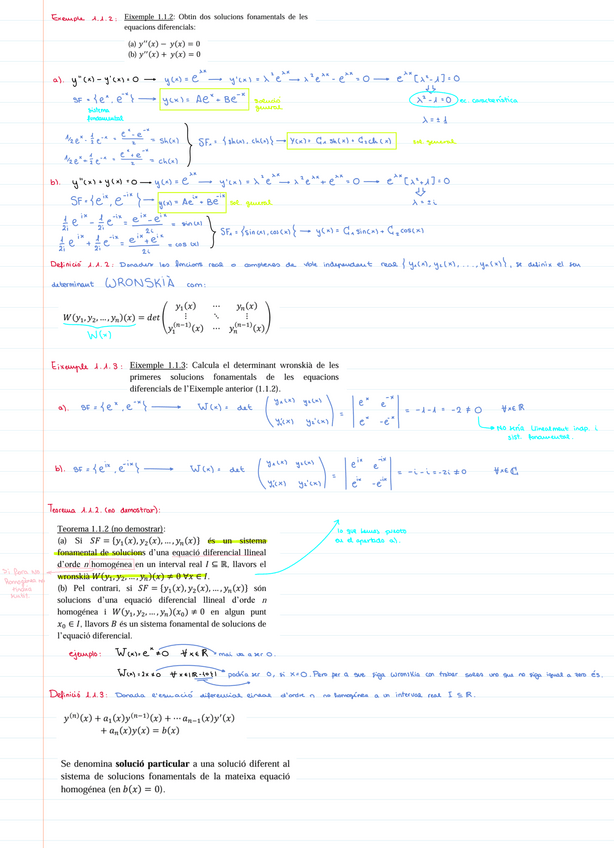 Exemple 1.1.2: Eixemple 1.1.2: Obtin dos solucions fonamentals de les
equacions diferencials:
(a) y′′(x) − y(x) = 0
(b) y′′(x) + y(x) = 0
a). y''(x) - y'(x) = 0 → y(x) = e^λx → y'(x) = λ² e^λx → λ² e^λx - e^λx = 0 → e^λx [λ²-1] = 0
SF = {e^x, e^-x} → y(x) = Ae^x + Be^-x solució general
λ² - 1 = 0 ec. característica
sistema fonamental
λ = ± 1
1/2 e^x - 1/2 e^-x = (e^x - e^-x)/2 = sh(x)
SF₂ = {sh(x), ch(x)} → y(x) = C₁ sh(x) + C₂ ch(x) sol general
1/2 e^x + 1/2 e^-x = (e^x + e^-x)/2 = ch(x)
b). y''(x) + y(x) = 0 → y(x) = e^λx → y'(x) = λ² e^λx → λ² e^λx + e^λx = 0 → e^λx [λ²+1] = 0
SF = {e^ix, e^-ix} → y(x) = Ae^ix + Be^-ix sol general
λ = ± i
1/2i e^ix - 1/2i e^-ix = (e^ix - e^-ix)/2i = sin(x)
SF₂ = {sin(x), cos(x)} → y(x) = C₁ sin(x) + C₂ cos(x)
1/2i e^ix + 1/2i e^-ix = (e^ix + e^-ix)/2i = cos(x)
Definició 1.1.2: Donades les funcions real o complexes de vble independent real {y₁(x), y₂(x), ..., yₙ(x)}, se definix el seu
determinant WRONSKIÀ com:
W(y₁, y₂, …, yₙ)(x) = det ( y₁(x) ⋯ yₙ(x)
⋮ ⋱ ⋮
y₁⁽ⁿ⁻¹⁾(x) ⋯ yₙ⁽ⁿ⁻¹⁾(x) )
W(x)
Eixemple 1.1.3: Eixemple 1.1.3: Calcula el determinant wronskià de les
primeres solucions fonamentals de les equacions
diferencials de l'Eixemple anterior (1.1.2).
a). SF = {e^x, e^-x} → W(x) = det ( y₁(x) y₂(x) y₁'(x) y₂'(x) ) = | e^x e^-x e^x -e^-x | = -1-1 = -2 ≠ 0 ∀x∈ℝ
linealment indp. i
sist fonamental.
b). SF = {e^ix, e^-ix} → W(x) = det ( y₁(x) y₂(x) y₁'(x) y₂'(x) ) = | e^ix e^-ix e^ix -e^ix | = -i-i = -2i ≠ 0 ∀x∈ℂ
Teorema 1.1.2 (no demostrar):
Teorema 1.1.2 (no demostrar):
(a) Si SF = {y₁(x), y₂(x), …, yₙ(x)} és un sistema
fonamental de solucions d'una equació diferencial llineal
d'orde n homogénea en un interval real I ⊆ ℝ, llavors el
wronskià W(y₁, y₂, …, yₙ)(x) ≠ 0 ∀x ∈ I.
(b) Pel contrari, si SF = {y₁(x), y₂(x), …, yₙ(x)} són
solucions d'una equació diferencial llineal d'orde n
homogénea i W(y₁, y₂, …, yₙ)(x₀) ≠ 0 en algun punt
x₀ ∈ I, llavors B és un sistema fonamental de solucions de
l'equació diferencial.
lo que hemos puesto
en el apartado a).
ejemplo: W(x) = e^x ≠ 0 ∀x∈ℝ → mai va a ser 0.
W(x) = 2x ≠ 0 ∀x∈ℝ-{0} podria ser 0, si x=0. Pero per a que siga wronskia con trobar soles uno que no siga igual a zero és.
Definició 1.1.3: Donada l'equació diferencial lineal d'ordre n no homogènea a un interval real I ⊆ ℝ.
y⁽ⁿ⁾(x) + a₁(x)y⁽ⁿ⁻¹⁾(x) + ⋯ aₙ₋₁(x)y′(x)
+ aₙ(x)y(x) = b(x)
Se denomina solució particular a una solució diferent al
sistema de solucions fonamentals de la mateixa equació
homogénea (en b(x) = 0).